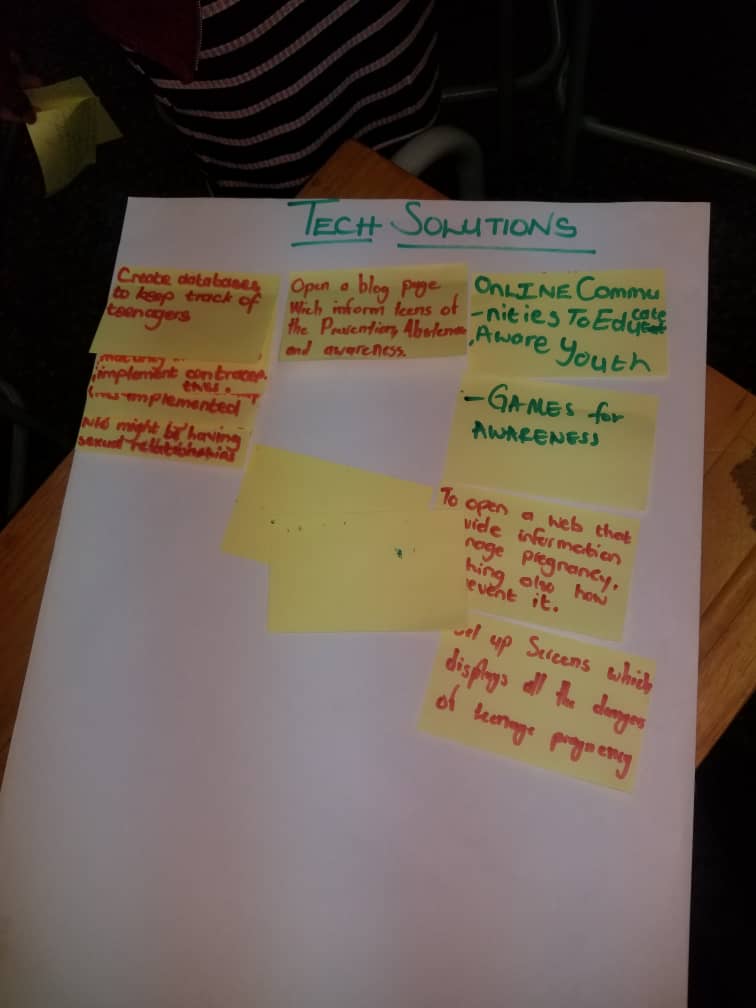 TECH SOLUTIONS
Create databases
to keep track of
teenagers
implement contracep.
this.
implemented
who might be having
sexual relationships
Open a blog page
Wich inform teens of
the Prevention, Abstenence
and awareness.
ONLINE Commu
-nities To Educate
Aware Youth
- GAMES for
AWARENESS
To open a web that
vide information
nage pregnancy.
hing also how
event it.
up Screens which
displays all the dangers
of teenage pregnency